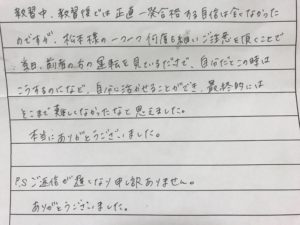 教習中、教習後では正直一発合格する自信は全くなかった
のですが、松本様の一つ一つ何度も細いご注意を頂くことで
当日、前者の方の運転を見ているだけで、自分だとこの時は
こうするのになど、自分に活かせることができ、最終的には
そこまで難しくなかったなと思えました。
本当にありがとうございました。
P.S ご返信が遅くなり申し訳ありません。
ありがとうございました。